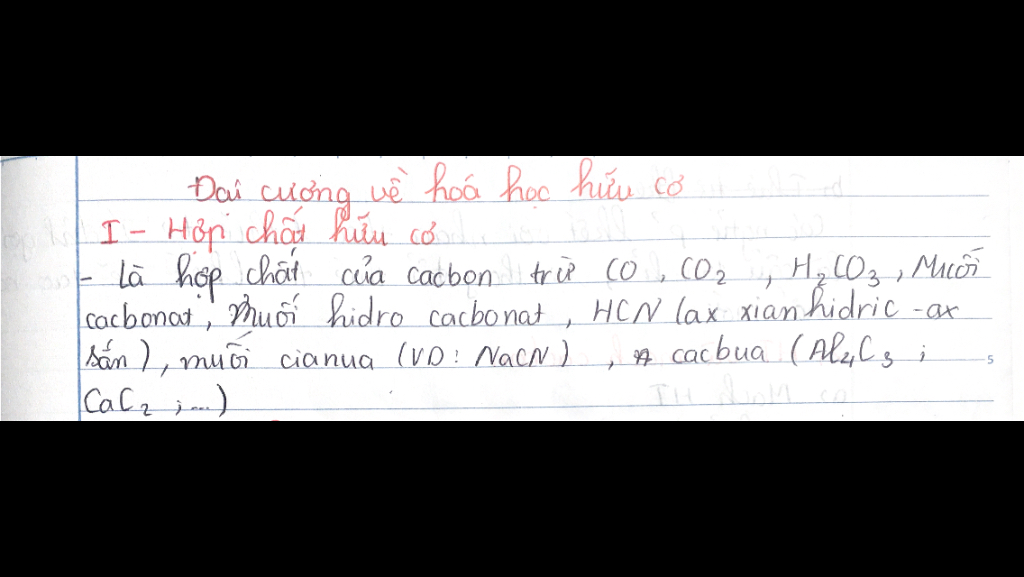 Đại cương về hoá học hữu cơ
I - Hợp chất hữu cơ
- Là hợp chất của cacbon trừ CO, CO2, H2CO3, Muối
cacbonat, muối hidro cacbonat, HCN (ax xianhidric - ax
sắn), muối cianua (VD: NaCN), cacbua (Al4C3;
CaC2;...)
5